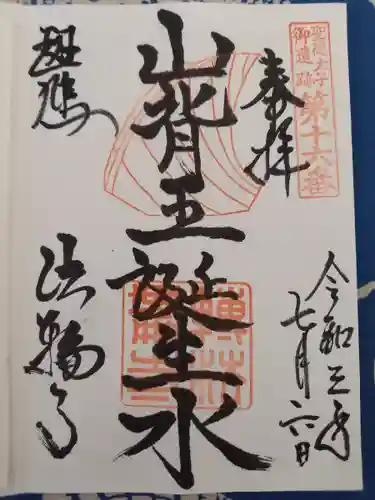 聖徳太子
御遺跡
第十六番
奉拝
令和三年
七月六日
山背王誕生水
斑鳩
法輪寺